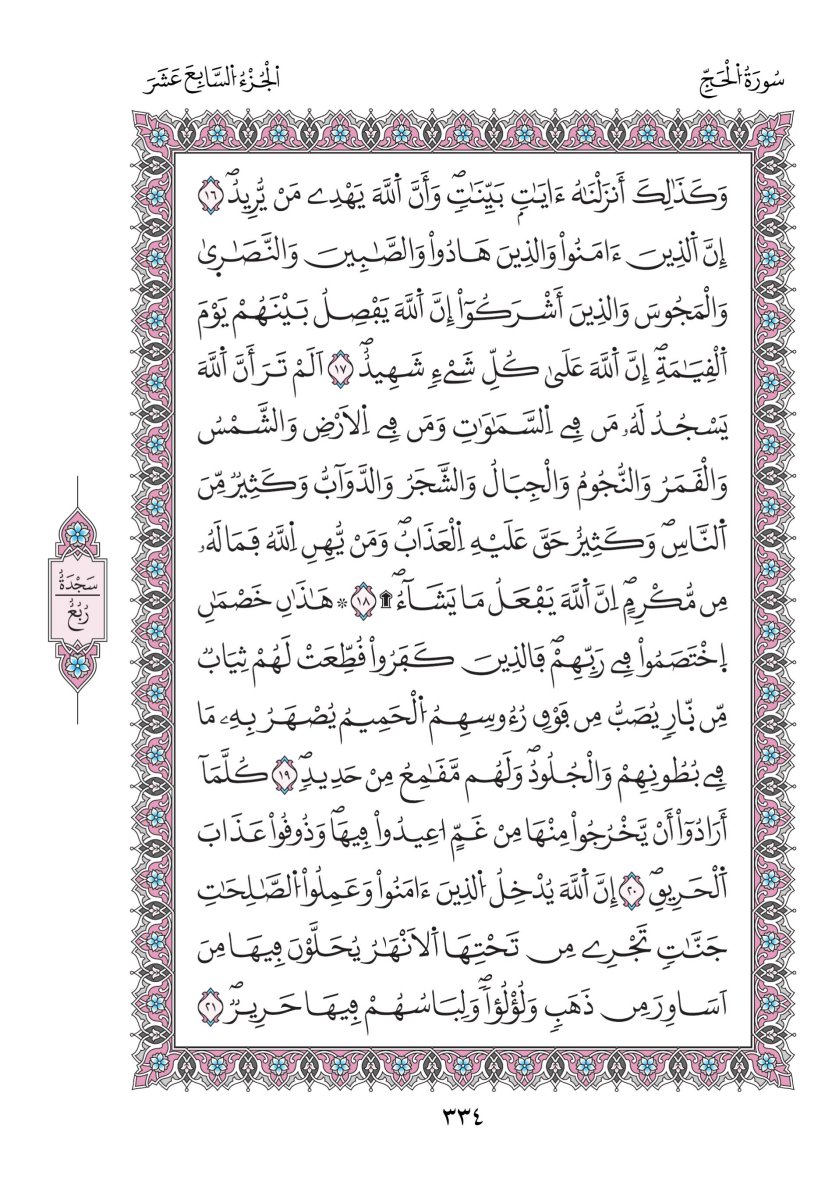 سُورَةُ الْحَجِّ
اَلْجُزْءُ السَّابِعَ عَشَرَ
وَكَذَٰلِكَ أَنزَلْنَٰهُ ءَايَٰتِۢ بَيِّنَٰتٖۖ وَأَنَّ اَ۬للَّهَ يَهْدِے مَنْ يُّرِيدُۖ ١٦
إِنَّ اَ۬لذِينَ ءَامَنُواْ وَالذِينَ هَادُواْ وَالصَّٰبِينَ وَالنَّصَٰر۪يٰ
وَالْمَجُوسَ وَالذِينَ أَشْرَكُوٓاْ إِنَّ اَ۬للَّهَ يَفْصِلُ بَيْنَهُمْ يَوْمَ
اَ۬لْقِيَٰمَةِۖ إِنَّ اَ۬للَّهَ عَلَيٰ كُلِّ شَےْءٖ شَهِيدٌۖ ١٧ اَلَمْ تَرَ أَنَّ اَ۬للَّهَ
يَسْجُدُ لَهُۥ مَن فِے اِ۬لسَّمَٰوَٰتِ وَمَن فِے اِ۬لَارْضِ وَالشَّمْسُ
وَالْقَمَرُ وَالنُّجُومُ وَالْجِبَالُ وَالشَّجَرُ وَالدَّوَآبُّ وَكَثِيرٞ مِّنَ
اَ۬لنَّاسِۖ وَكَثِيرٌ حَقَّ عَلَيْهِ اِ۬لْعَذَابُۖ وَمَنْ يُّهِنِ اِ۬للَّهُ فَمَا لَهُۥ
مِن مُّكْرِمٍۖ اِنَّ اَ۬للَّهَ يَفْعَلُ مَا يَشَآءُۖ ۩ ١٨ * هَٰذَٰنِ خَصْمَٰنِ
اِ۪خْتَصَمُواْ فِے رَبِّهِمْۖ فَالذِينَ كَفَرُواْ قُطِّعَتْ لَهُمْ ثِيَابٞ
مِّن نّ۪ارٖ يُصَبُّ مِن فَوْقِ رُءُوسِهِمُ اُ۬لْحَمِيمُ يُصْهَرُ بِهِۦ مَا
فِے بُطُونِهِمْ وَالْجُلُودُۖ وَلَهُم مَّقَٰمِعُ مِنْ حَدِيدٖۖ ١٩ كُلَّمَآ
أَرَادُوٓاْ أَنْ يَّخْرُجُواْ مِنْهَا مِنْ غَمٍّ ا۟عِيدُواْ فِيهَاۖ وَذُوقُواْ عَذَابَ
اَ۬لْحَرِيقِۖ ٢٠ إِنَّ اَ۬للَّهَ يُدْخِلُ اُ۬لذِينَ ءَامَنُواْ وَعَمِلُواْ اُ۬لصَّٰلِحَٰتِ
جَنَّٰتٖ تَجْرِے مِن تَحْتِهَا اَ۬لَانْهَٰرُ يُحَلَّوْنَ فِيهَا مِنَ
اَسَاوِرَ مِن ذَهَبٖ وَلُؤْلُؤاٗۖ وَلِبَاسُهُمْ فِيهَا حَرِيرٞۖ ٢١
سَجْدَةٌ
رُبُعُ
٣٣٤